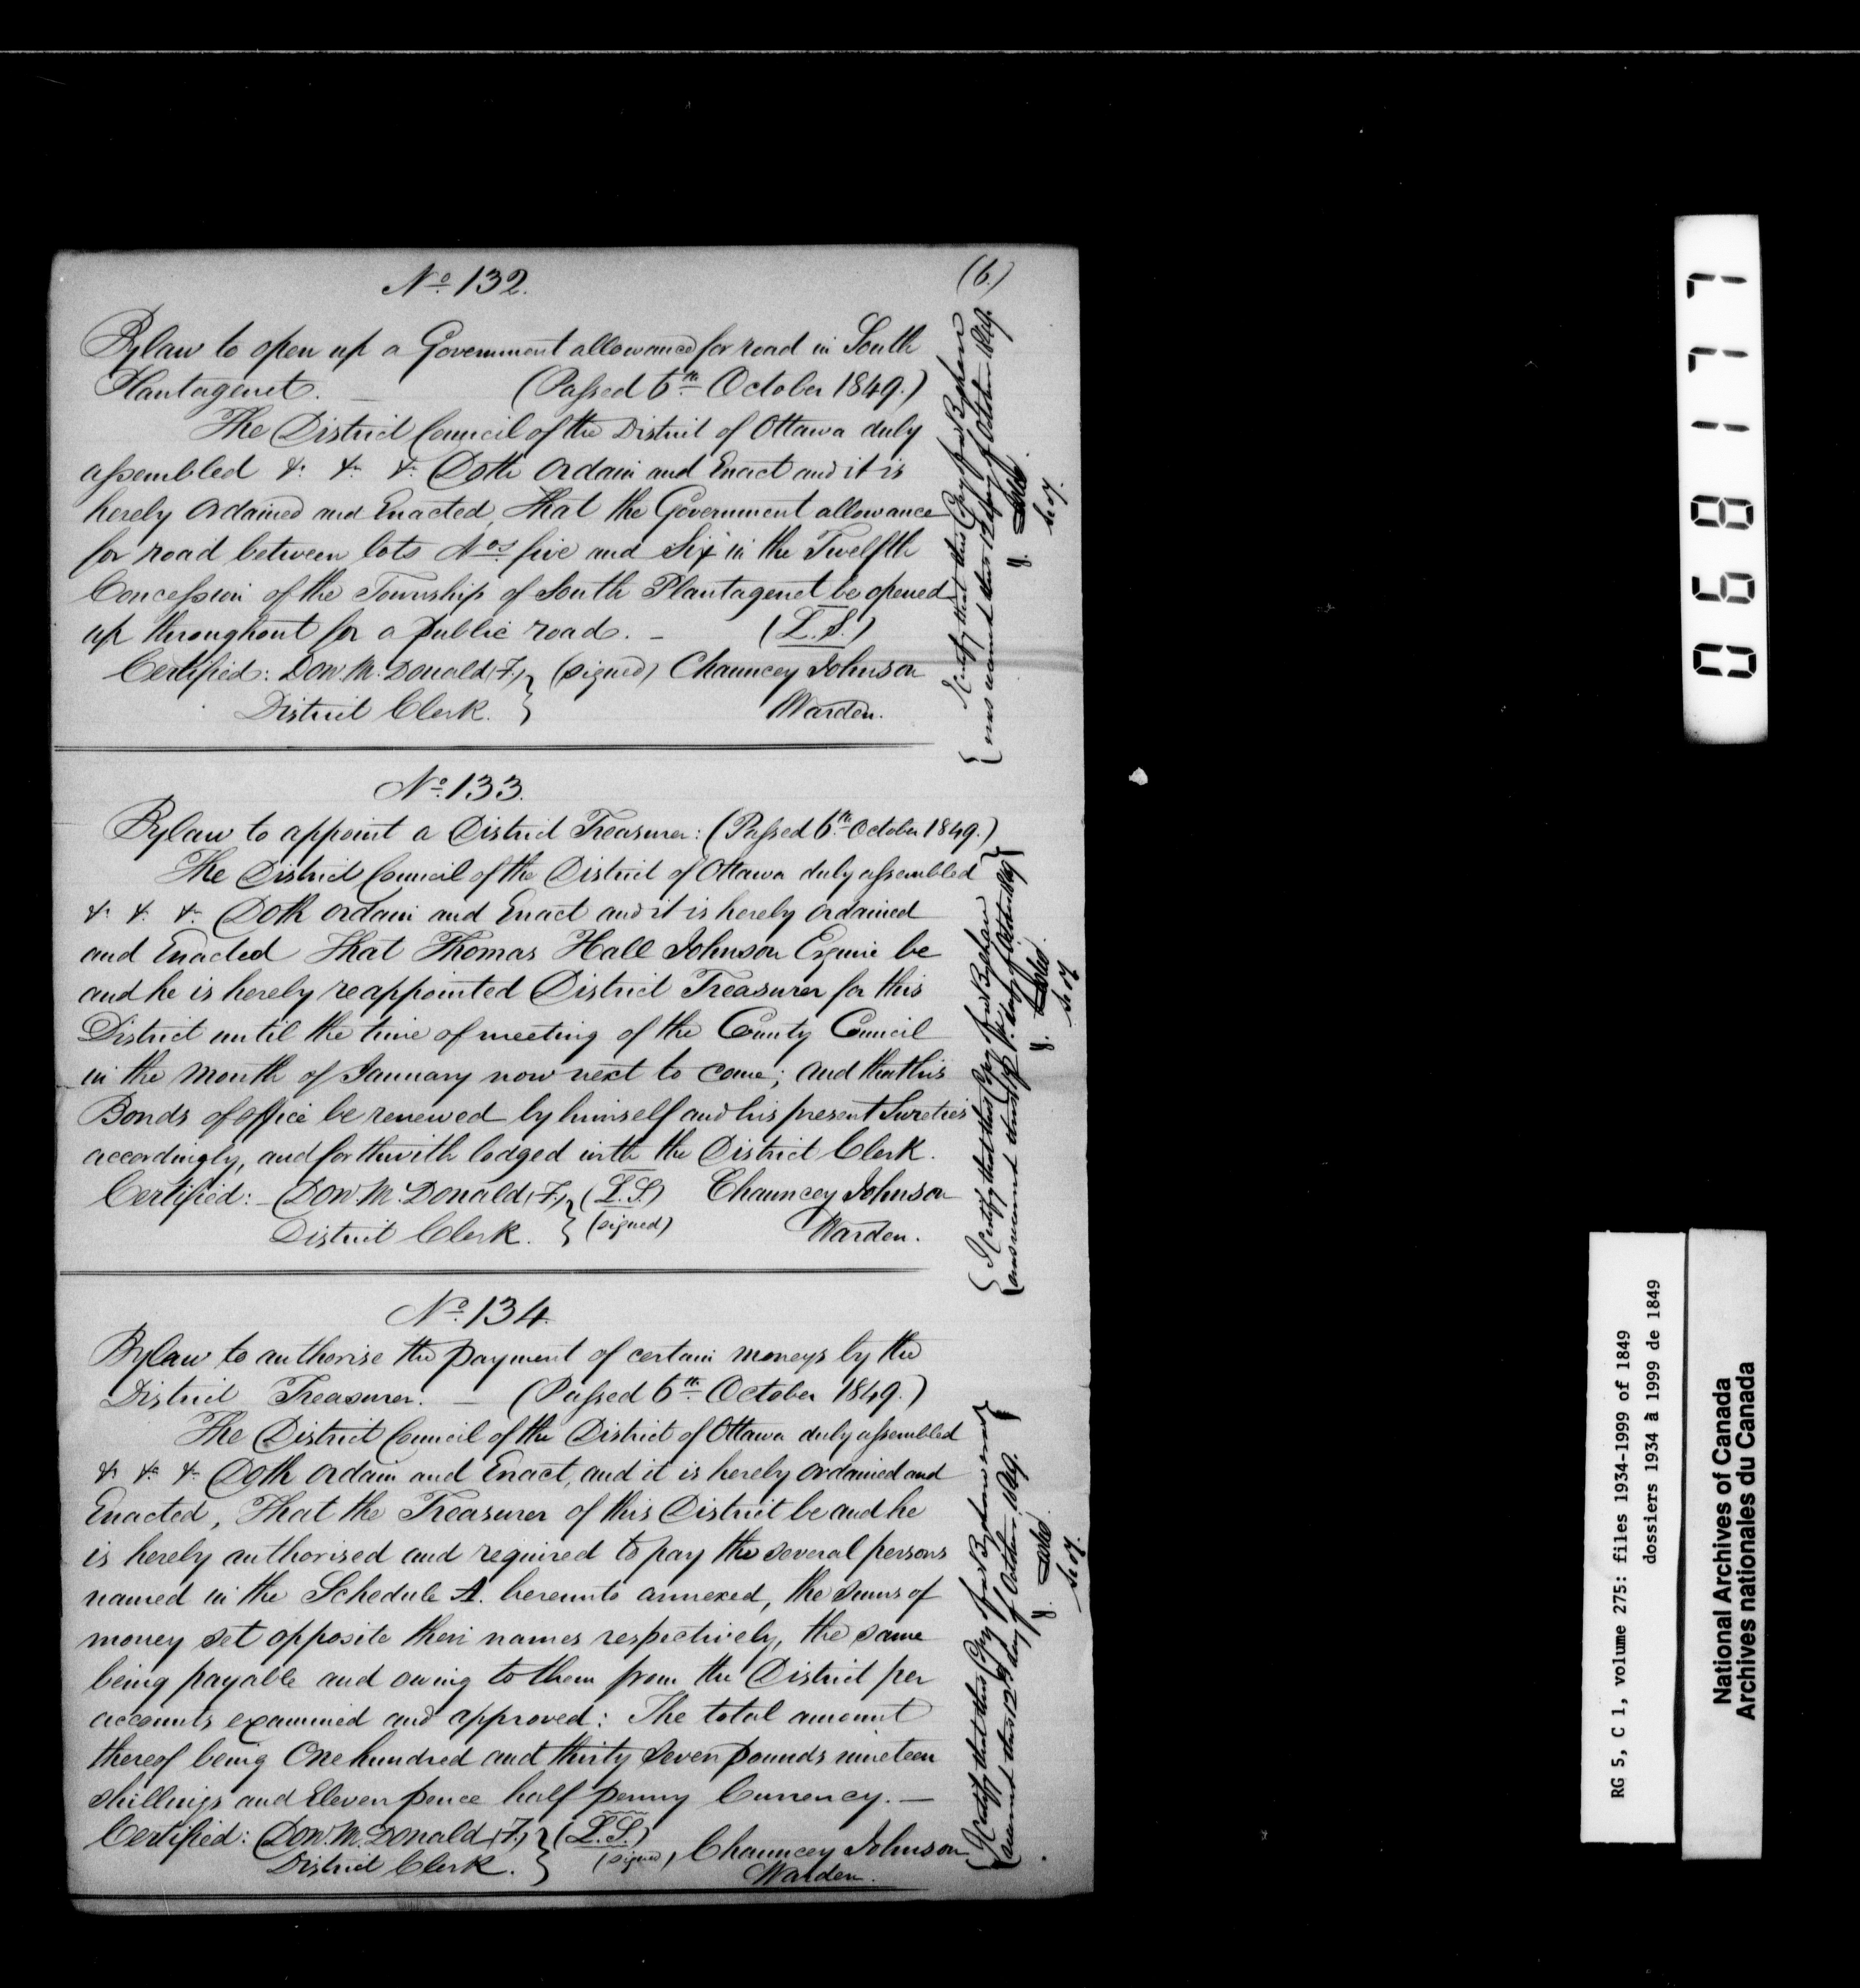 (6.)
No. 132.
Bylaw to open up a Government allowance for road in South
Plantagenet. — (Passed 6th October 1849.)
The District Council of the District of Ottawa duly
assembled &c &c &c Doth Ordain and Enact and it is
hereby Ordained and Enacted, That the Government allowance
for road between lots Nos. five and Six in the Twelfth
Concession of the Township of South Plantagenet be opened
up throughout for a public road. — (L.S.)
Certified: Don. McDonald (F.) } (signed) Chauncey Johnson
District Clerk. } Warden.
I Certify that this Copy of a Bylaw
was received this 12th day of October 1849.
No. 133.
Bylaw to appoint a District Treasurer: (Passed 6th October 1849.)
The District Council of the District of Ottawa duly assembled
&c &c &c Doth Ordain and Enact and it is hereby Ordained
and Enacted That Thomas Hall Johnson Esquire be
and he is hereby reappointed District Treasurer for this
District until the time of meeting of the County Council
in the month of January now next to come; and that his
Bonds of office be renewed by himself and his present Sureties
accordingly, and forthwith lodged with the District Clerk.
Certified: — Don. McDonald (F.) } (L.S.) Chauncey Johnson
District Clerk. } (signed) Warden.
I Certify that this Copy of a Bylaw
was received this day of October 1849
No. 134.
Bylaw to authorise the payment of certain moneys by the
District Treasurer. — (Passed 6th October 1849.)
The District Council of the District of Ottawa duly assembled
&c &c &c Doth Ordain and Enact, and it is hereby Ordained and
Enacted, That the Treasurer of this District be and he
is hereby authorised and required to pay the several persons
named in the Schedule A. hereunto annexed, the sums of
money set opposite their names respectively, the same
being payable and owing to them from the District per
accounts examined and approved: The total amount
thereof being One hundred and thirty seven pounds nineteen
shillings and Eleven pence half penny Currency. —
Certified: Don. McDonald (F.) } (L.S.)
District Clerk. } (signed) Chauncey Johnson
Warden.
I Certify that this Copy of a Bylaw was
received this 12th day of October, 1849.
068177
RG 5, C 1, volume 275: files 1934-1999 of 1849
dossiers 1934 à 1999 de 1849
National Archives of Canada
Archives nationales du Canada